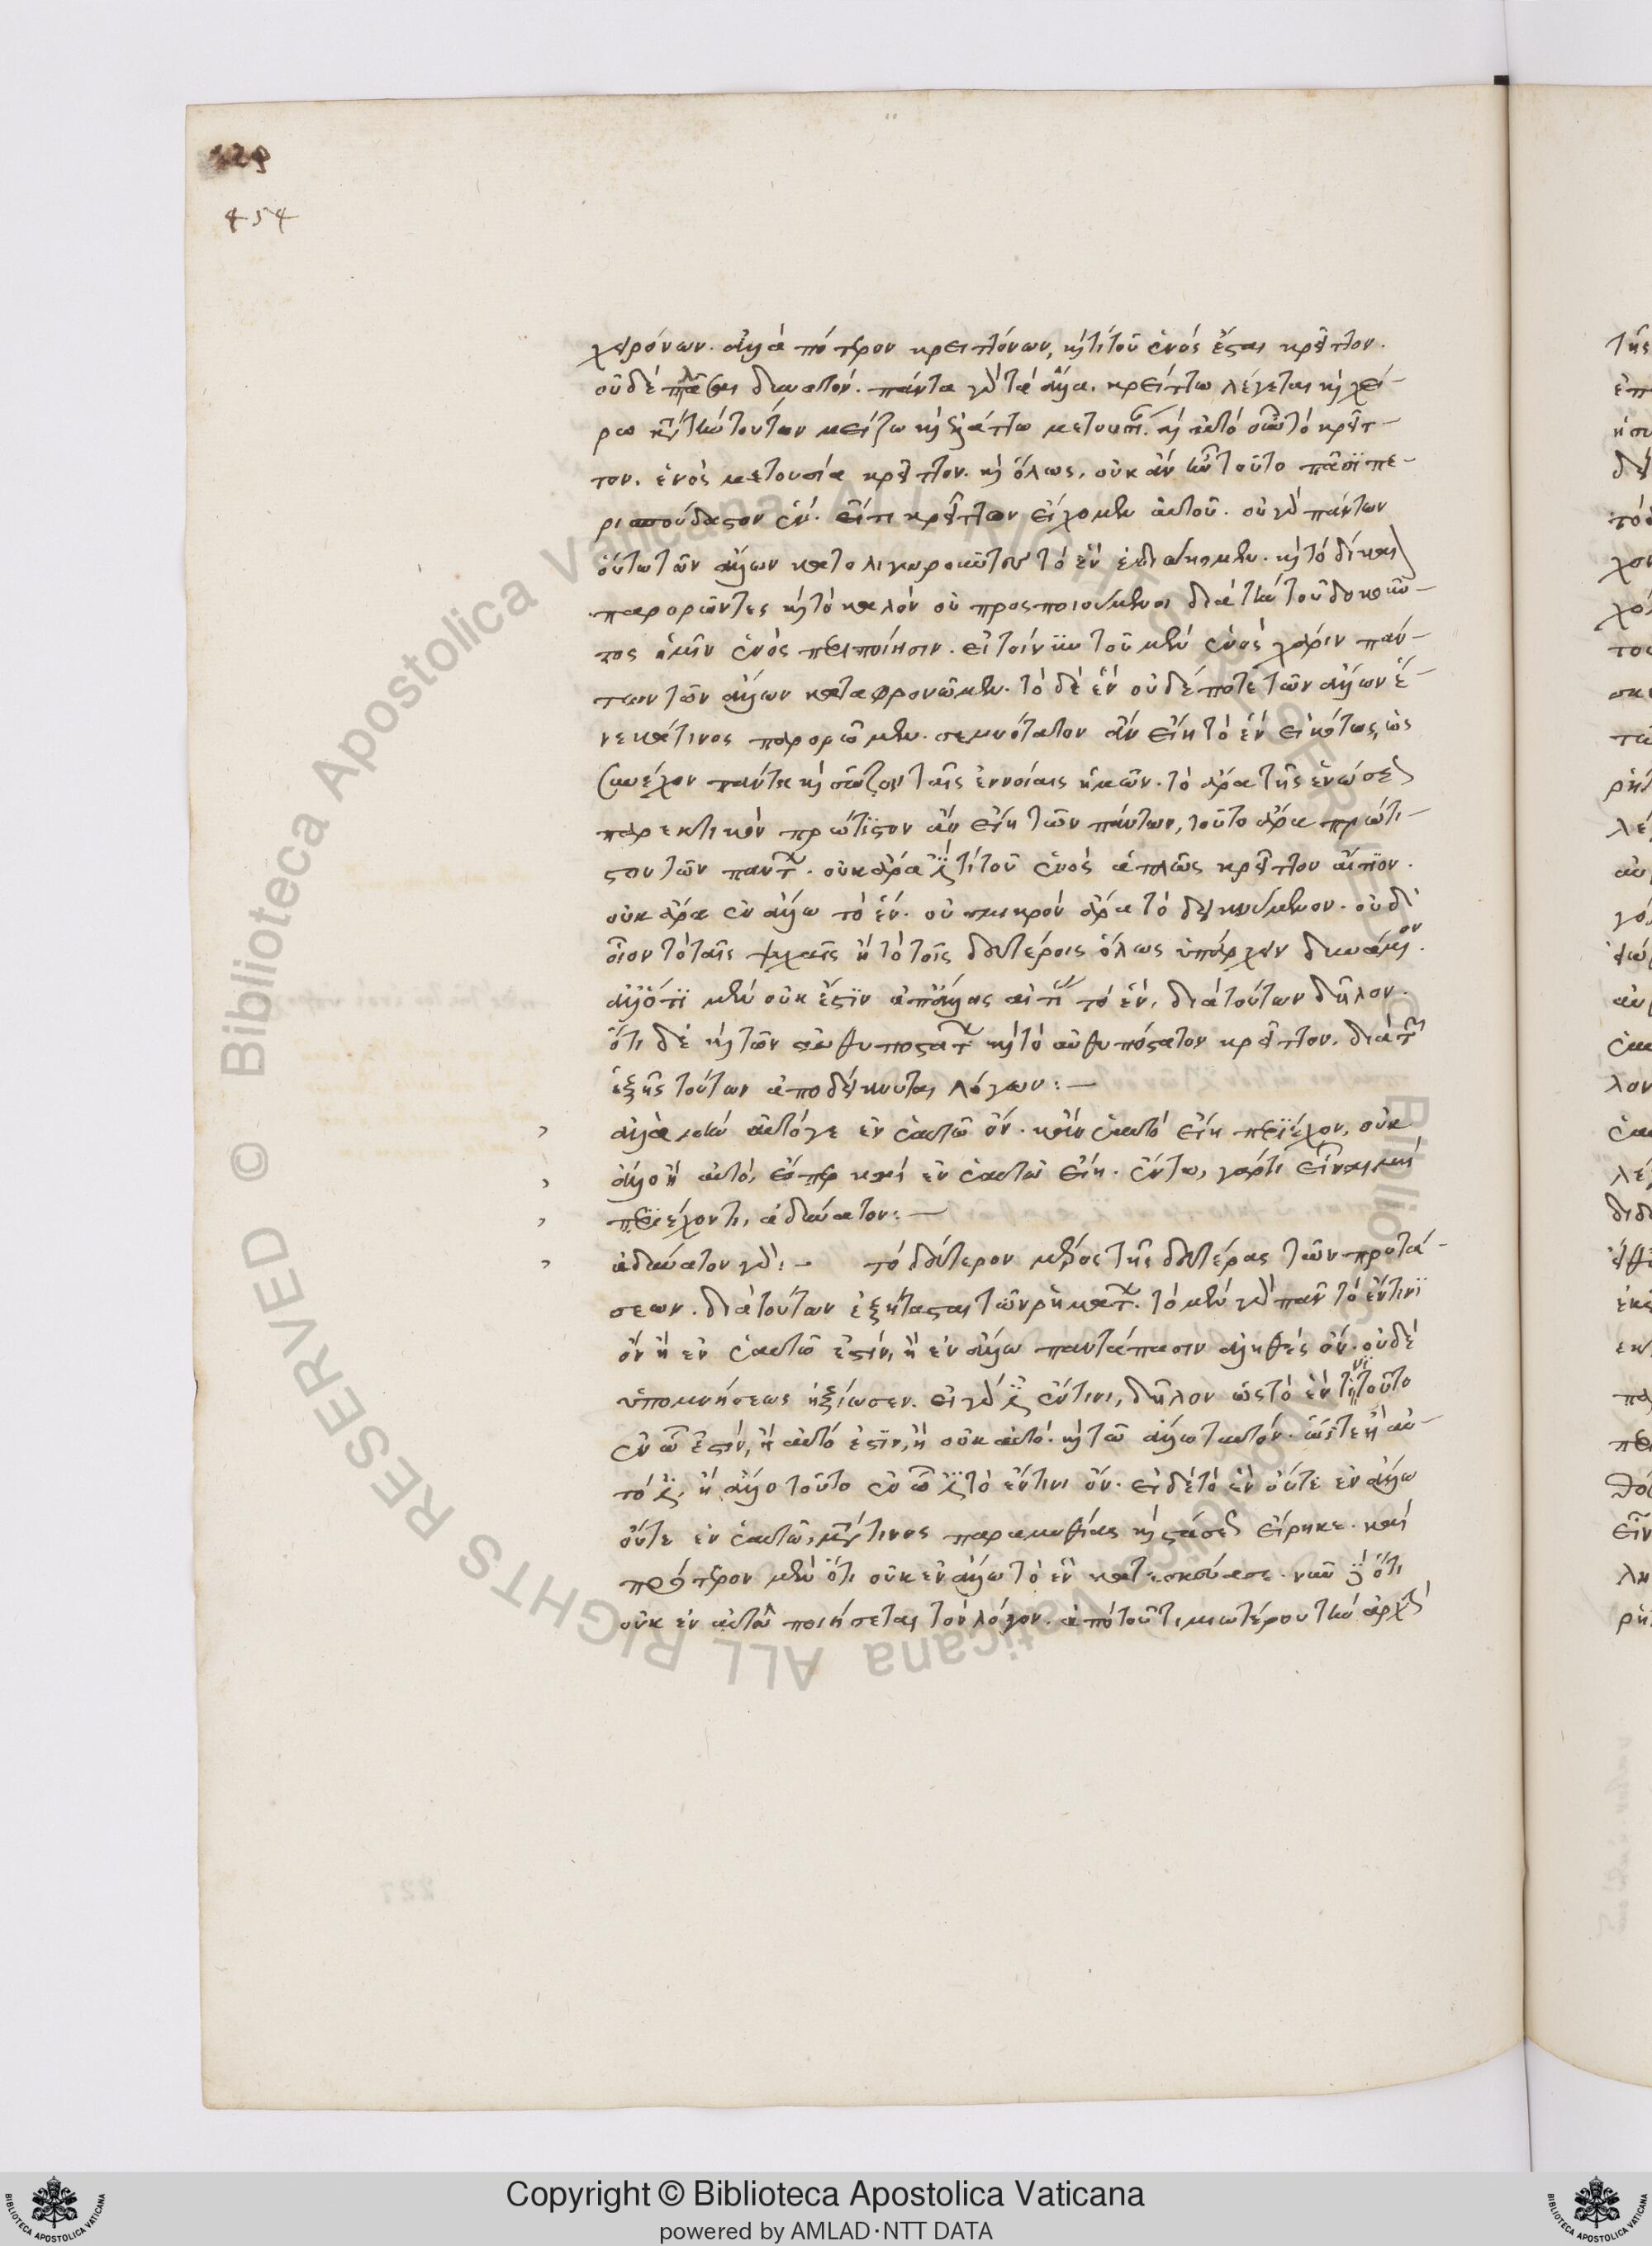 229
454
χειρόνων. ἀλλὰ πότερον κρειττόνων, καὶ τί τοῦ ἑνὸς ἔσται κρεῖττον.
οὐδὲ πλάσαι δυνατόν. πάντα γὰρ τὰ ἄλλα, κρείττω λέγεται καὶ χεί-
ρω κατὰ τὴν τούτων μείζω καὶ ἐλάττω μετουσίαν. καὶ αὐτὸ αὖ τὸ κρεῖτ-
τον, ἑνὸς μετουσία κρεῖττον. καὶ ὅλως, οὐκ ἂν ἦν τοῦτο πᾶσι πε-
ρισπούδαστον ἕν. εἴ τι κρεῖττον εἴχομεν αὐτοῦ. οὐ γὰρ πάντων
οὕτω τῶν ἄλλων κατολιγωροῦντες τὸ ἓν ἐδιώκομεν. καὶ τὸ δίκαιον
παρορῶντες καὶ τὸ καλὸν οὐ προσποιούμενοι διὰ τὴν τοῦ δοκοῦν-
τος ἡμῖν ἑνὸς περιποίησιν. εἰ τοίνυν τοῦ μὲν ἑνὸς χάριν πάν-
των τῶν ἄλλων καταφρονῶμεν. τὸ δὲ ἓν οὐδέποτε τῶν ἄλλων ἕ-
νεκά τινος παρορῶμεν. σεμνότατον ἂν εἴη τὸ ἓν εἰκότως, ὡς
συνέχον πάντα καὶ σῶζον ταῖς ἐννοίαις ἡμῶν. τὸ ἄρα τῆς ἑνώσεως
παρεκτικὸν πρώτιστον ἂν εἴη τῶν πάντων, τοῦτο ἄρα πρώτι-
στον τῶν πάντων. οὐκ ἄρα ἐστί τι τοῦ ἑνὸς ἁπλῶς κρεῖττον αἴτιον.
οὐκ ἄρα ἐν ἄλλω τὸ ἕν. οὐ σμικρὸν ἄρα τὸ δεικνύμενον. οὐδὲ
οἷον τὸ ταῖς ψυχαῖς ἢ τὸ τοῖς δευτέροις ὅλως ὑπάρχειν δυνάμενον.
ἀλλ' ὅτι μὲν οὐκ ἔστιν ἀπ' ἄλλης αἰτίας τὸ ἕν, διὰ τούτων δῆλον.
ὅτι δὲ καὶ τῶν αὐθυποστάτων καὶ τὸ αὐθυπόστατον κρεῖττον, διὰ τῶν
ἑξῆς τούτων ἀποδείκνυται λόγων:—
ἀλλὰ μὴν αὐτό γε ἐν ἑαυτῶ ὄν. κἂν ἑαυτὸ εἴη περιέχον, οὐκ
ἄλλο ἢ αὐτό, εἴπερ καὶ ἐν ἑαυτῶ εἴη. ἔν τω, γάρ τι εἶναι μὴ
περιέχοντι, ἀδύνατον:—
ἀδύνατον γάρ:— τὸ δεύτερον μέρος τῆς δευτέρας τῶν προτά-
σεων. διὰ τούτων ἐξήτασται τῶν ῥημάτων. τὸ μὲν γὰρ πᾶν τὸ ἔν τινι
ὂν ἢ ἐν ἑαυτῶ ἐστιν, ἢ ἐν ἄλλω παντάπασιν ἀληθὲς ὄν. οὐδὲ
ὑπομνήσεως ἠξίωσεν. εἰ γάρ ἐστι ἔν τινι, δῆλον ὡς τὸ ἔν τινι τοῦτο
ἐν ᾧ ἐστιν, ἢ αὐτό ἐστιν, ἢ οὐκ αὐτό. καὶ τῶ ἄλλω ταυτόν. ὥστε ἢ αὐ-
τό ἐστι, ἢ ἄλλο τοῦτο ἐν ᾧ ἐστι τὸ ἔν τινι ὄν. εἰ δὲ τὸ ἓν οὔτε ἐν ἄλλω
οὔτε ἐν ἑαυτῶ, μετά τινος παραμυθίας καὶ στάσεως εἴρηκε. καὶ
πρότερον μὲν ὅτι οὐκ ἐν ἄλλω τὸ ἓν κατεσκεύασε. νῦν δὲ ὅτι
οὐκ ἐν αὑτῶ ποιήσεται τὸν λόγον. ἀπὸ τοῦ τιμιωτέρου τὴν ἀρχὴν